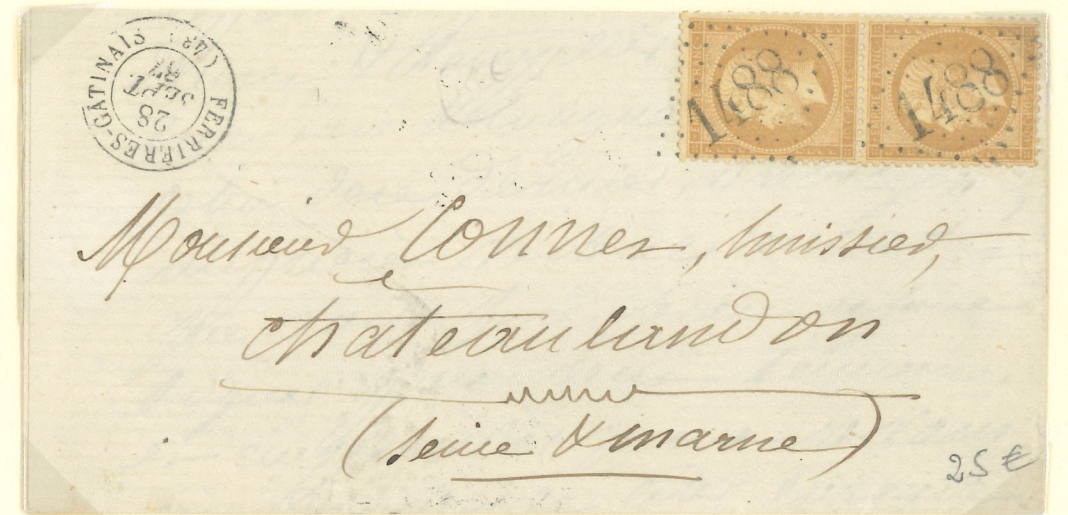 FERRIÈRES-GÂTINAIS (43)
28
SEPT
67
1488
1488
Monsieur Connes, huissier,
Chateaulandon
(Seine & marne)
25 €